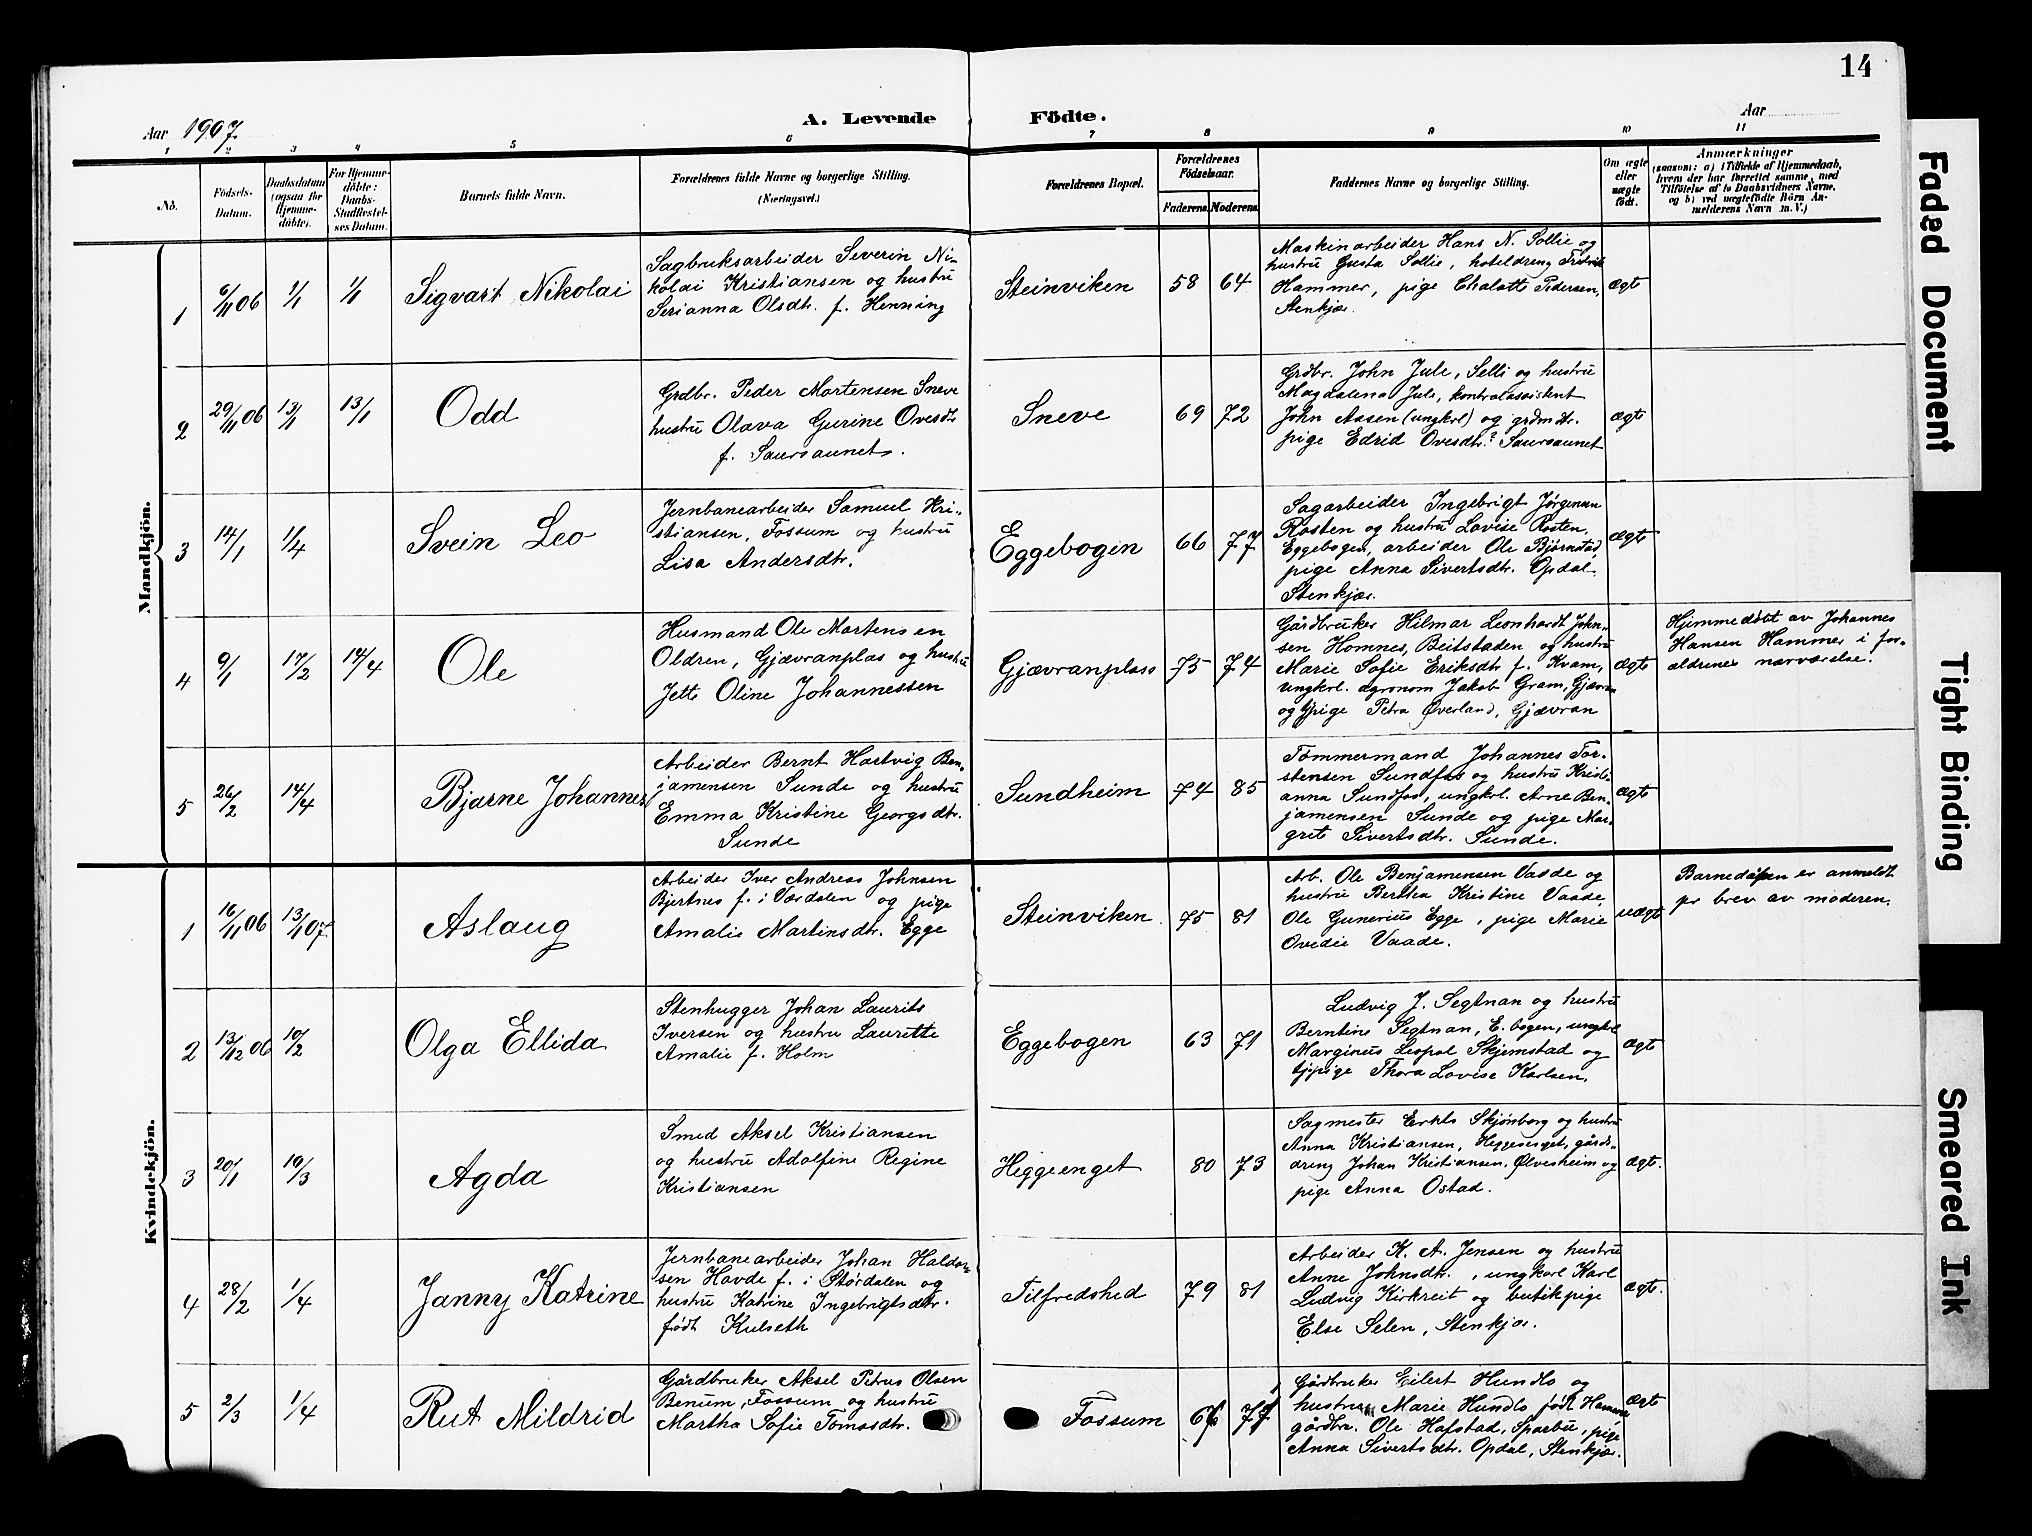 14
A. Levende Födte.
Aar 1907
Aar
1 2 3 4 5 6 7 8 9 10 11
No.
Födsels-
Datum.
Daabsdatum
(ogsaa for
Hjemme-
döbte).
For Hjemme-
döbte:
Daabs-
Stadfæstel-
ses Datum.
Barnets fulde Navn.
Forældrenes fulde Navne og borgerlige Stilling.
(Næringsvei.)
Forældrenes Bopæl.
Forældrenes
Födselsaar.
Faderens. Moderens.
Faddernes Navne og borgerlige Stilling.
Om ægte
eller
uægte
födt.
Anmærkninger
(saasom: a) i Tilfælde af Hjemmedaab,
hvem der har forrettet samme, med
Tilföielse af to Daabsvidners Navne,
og b) ved uægtefödte Börn An-
melderens Navn m. V.)
Mandkjön.
1
6/11 06
1/1
1/1
Sigvart Nikolai
Sagbruksarbeider Severin Ni-
kolai Kristiansen og hustru
Serianna Olsdtr. f. Henning
Steinviken
58 64
Maskinarbeider Hans N. Sollie og
hustru Gusta Sollie, hoteldreng Fredrik
Hammer, pige Chalotte Pedersen,
Stenkjær.
ægte
2
29/11 06
13/1
13/1
Odd
Grdbr. Peder Mortensen Sneve
hustru Olava Gurine Ovesdtr
f. Saursaunet.
Sneve
69 72
Grdbr. John Jule, Selli og hustru
Magdalena Jule, kontrolassistent
John Aasen (ungkrl) og grdmdtr.
pige Edrid Ovesdtr. Saursaunet
ægte
3
14/1
1/4
Svein Leo
Jernbanearbeider Samuel Kri-
stiansen, Fossum og hustru
Lisa Andersdtr.
Eggebogen
66 77
Sagarbeider Ingebrigt Jørgensen
Rosten og hustru Lovise Rosten,
Eggebogen, arbeider Ole Bjørnstad,
pige Anna Sivertsdtr. Opdal,
Stenkjær.
ægte
4
9/1
17/2
14/4
Ole
Husmand Ole Martensen
Oldren, Gjævranplas og hustru
Jette Oline Johannessen
Gjævranplass
75 74
Gårdbruker Hilmar Leonhardt John-
sen Homnes, Beitstaden og hustru
Marie Sofie Eriksdtr f. Kvam,
ungkrl. agronom Jakob Gram, Gjævran
og tjpige Petra Øverland, Gjævran
ægte
Hjemmedøbt av Johannes
Hansen Hammer i for-
ældrenes nærværelse.
5
26/2
14/4
Bjarne Johannes
Arbeider Bernt Hartvig Ben-
jamensen Sunde og hustru
Emma Kristine Georgsdtr.
Sunde
Sundheim
74 85
Tømmermand Johannes Tor-
stensen Sundfas og hustru Kristi-
anna Sundfas, ungkrl. Arne Ben-
jamensen Sunde og pige Mar-
grete Sivertsdtr. Sunde.
ægte
Kvindekjön.
1
16/11 06
13/1 07
Aslaug
Arbeider Iver Andreas Johnsen
Bjertnes f. i Værdalen og pige
Amalie Martinsdtr. Egge
Steinviken
75 81
Arb. Ole Benjamensen Vaade og
hustru Bertha Kristine Vaade,
Ole Gunerius Egge, pige Marie
Ovedie Vaade.
uægte
Barnedåpen er anmeldt
pr brev av moderen.
2
13/12 06
10/2
Olga Ellida
Stenhugger Johan Laurits
Iversen og hustru Lauritte
Amalie f. Holm
Eggebogen
63 71
Ludvig J. Segtnan og hustru
Berntine Segtnan, E.bogen, ungkrl
Marginus Leopol Skjemstad og
tjpige Thora Lovise Karlsen.
ægte
3
20/1
10/3
Agda
Smed Aksel Kristiansen
og hustru Adolfine Regine
Kristiansen
Heggeenget
80 73
Sagmester Erkls Skjønborg og hustru
Anna Kristiansen, Heggeenget, gårds-
dreng Johan Kristiansen, Ølvesheim og
pige Anna Ostad.
ægte.
4
28/2
1/4
Janny Katrine
Jernbanearbeider Johan Haldor-
sen Havde f. i Størdalen og
hustru Katrine Ingebrigtsdtr.
født Kulseth
Tilfredshed
79 81
Arbeider K. A. Jensen og hustru
Anne Johnsdtr., ungkarl Karl
Ludvig Kirkreit og butikpige
Else Selen, Stenkjær.
ægte.
5
2/3
1/4
Rut Mildrid
Gårdbruker Aksel Petrus Olsen
Benum, Fossum og hustru
Martha Sofie Tomasdtr.
Fossum
67 77
Gårdbruker Eilert Hundlo og
hustru Marie Hundlo født
gårdbr. Ole Hafstad, Sparbu, pige
Anna Sivertsdtr. Opdal, Stenkjær.
ægte
Faded Document
Tight Binding
Smeared Ink